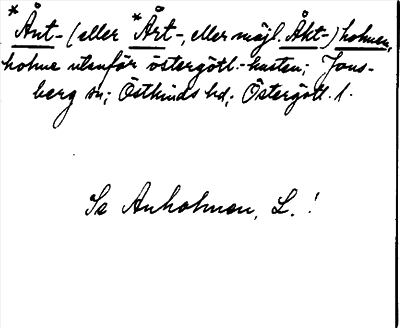 *Ånt- (eller *Årt-, eller möjl. Åkt-) holmen,
holme utanför östergötl.-kusten; Jons-
berg sn; Östkinds hd; Östergötl. l.
Se Anholmen, L. !